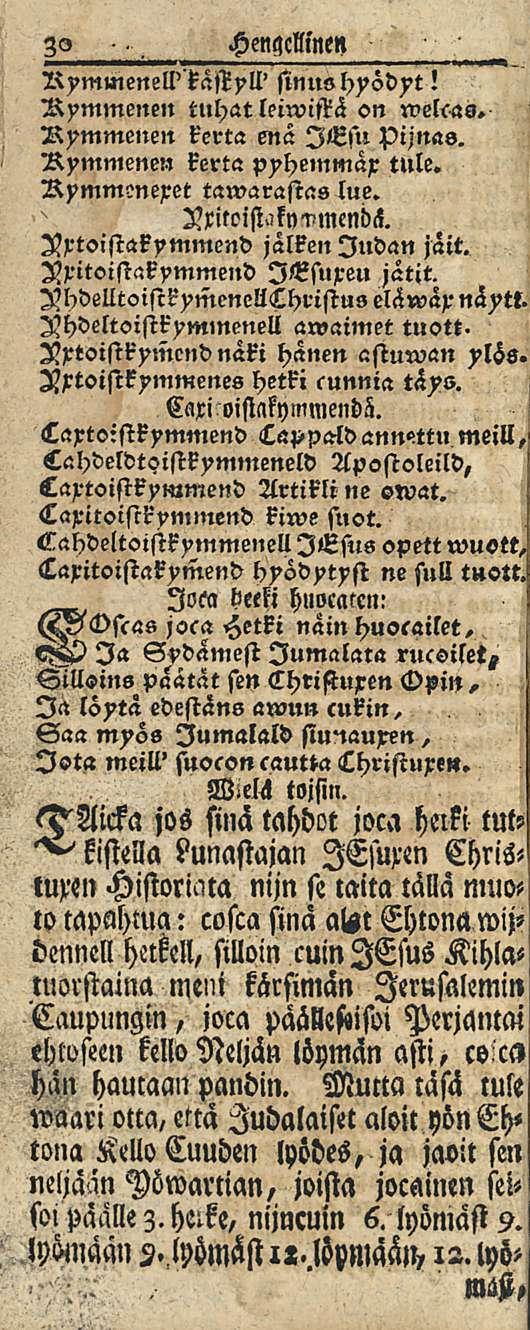 30 Hengellinen
Kymmenell' käskyll' sinus hyödyt!
Kymmenen tuhat leiwiskä on welcas.
Kymmenen kerta enä JEsu Pijnas.
Kymmenen kerta pyhemmäx tule.
Kymmenexet tawarastas lue.
Yxitoistakymmendä.
Yxtoistakymmend jälken Judan jäit.
Yxitoistakymmend JEsuxen jätit.
Yhdelltoistkym̃enell Christus eläwäx näytt.
Yhdeltoistkymmenell awaimet tuott.
Yxtoistkym̃end näki hänen astuwan ylös.
Yxtoistkymmenes hetki cunnia täys.
Caxitoistakymmendä.
Caxtoistkymmend Cappald annettu meill,
Cahdeldtoistkymmeneld Apostoleild,
Caxtoistkymmend Artikli ne owat.
Caxitoistkymmend kiwe suot.
Cahdeltoistkymmenell JEsus opett wuott,
Caxitoistakym̃end hyödytyst ne sull tuott.
Joca hetki huocaten:
COscas joca Hetki näin huocailet,
Ja Sydämest Jumalata rucoilet,
Silloins päätät sen Christuxen Opin,
Ja löytä edestäns awun cukin,
Saa myös Jumalald siunauxen,
Jota meill' suocon cautta Christuxen.
Wielä toisin.
TAicka jos sinä tahdot joca hetki tut-
kistella Lunastajan JEsuxen Chris-
tuxen Historiata nijn se taita tällä muo-
to tapahtua: cosca sinä alat Ehtona wij-
dennell hetkell, silloin cuin JEsus Kihla-
tuorstaina meni kärsimän Jerusalemin
Caupungin, joca päällesoisoi Perjantai
ehtoseen kello Neljän löymän asti, cosca
hän hautaan pandin. Mutta täsä tule
waari otta, että Judalaiset aloit yön Eh-
tona Kello Cuuden lyödes, ja jaoit sen
neljään Yöwartian, joista jocainen sei-
soi päälle 3. hetke, nijncuin 6. lyömäst 9.
lyömään 9. lyömäst 12. löymään, 12. lyö-
mäst,